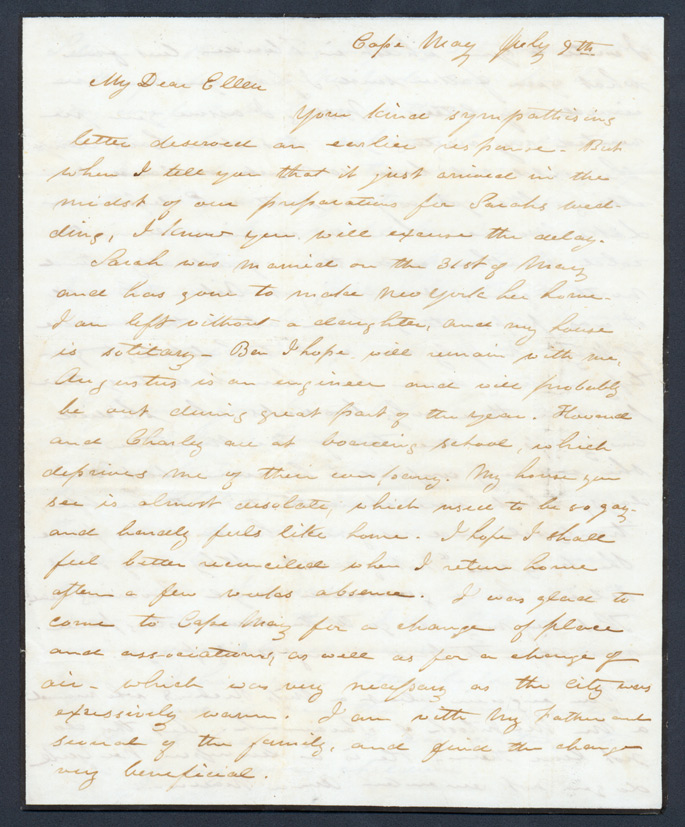 Cape May July 9th
My Dear Ellen
Your kind sympathising
letter deserved an earlier response - But
when I tell you that it just arrived in the
midst of our preparations for Sarahs wed-
ding, I know you will excuse the delay.
Sarah was married on the 31st of May
and has gone to make New York her home -
I am left without a daughter, and my house
is solitary - Ben I hope will remain with me,
Augustus is an engineer and will probably
be out during great part of the year. Howard
and Charley are at boarding school, which
deprives me of their company. My house you
see is almost desolate, which used to be so gay -
and hardly feels like home. I hope I shall
feel better reconciled when I return home
after a few weeks absence. I was glad to
come to Cape May for a change of place
and associations, as well as for a change of
air - which was very necessary as the city was
excessively warm. I am with my Father and
several of the family, and find the change
very beneficial.